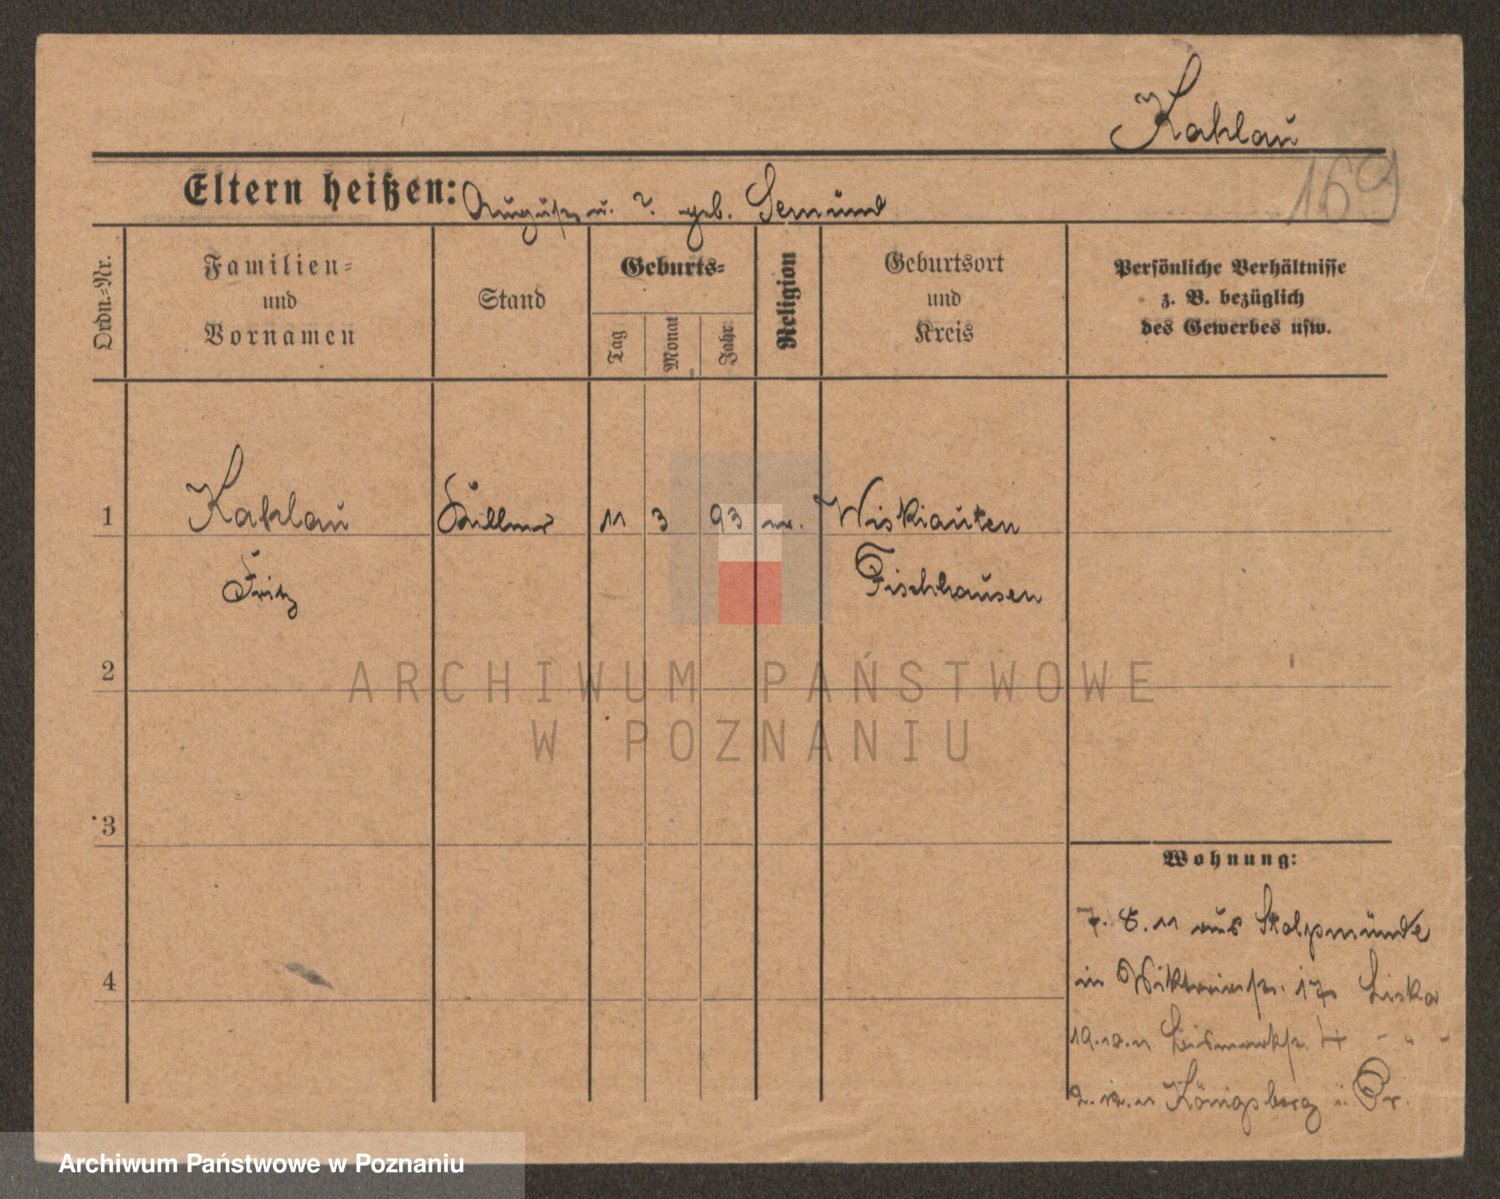 Kahlau
169
Eltern heißen: August u. ?. geb. Gemünd
Ordn.-Nr.
Familien- und Vornamen
Stand
Geburts-
Tag
Monat
Jahr
Religion
Geburtsort und Kreis
Persönliche Verhältnisse
z. B. bezüglich
des Gewerbes usw.
1 Kahlau Kellner 11 3 93 ev. Wiskiauten
Fritz Fischhausen
2
3
4
Wohnung:
7. 8. 11 aus Stolpmünde
in Viktoriastr. 17
19.10.11 Bismarckstr. 4 - " -
2.12.11 Königsberg i. Pr.
ARCHIWUM PAŃSTWOWE
W POZNANIU
Archiwum Państwowe w Poznaniu